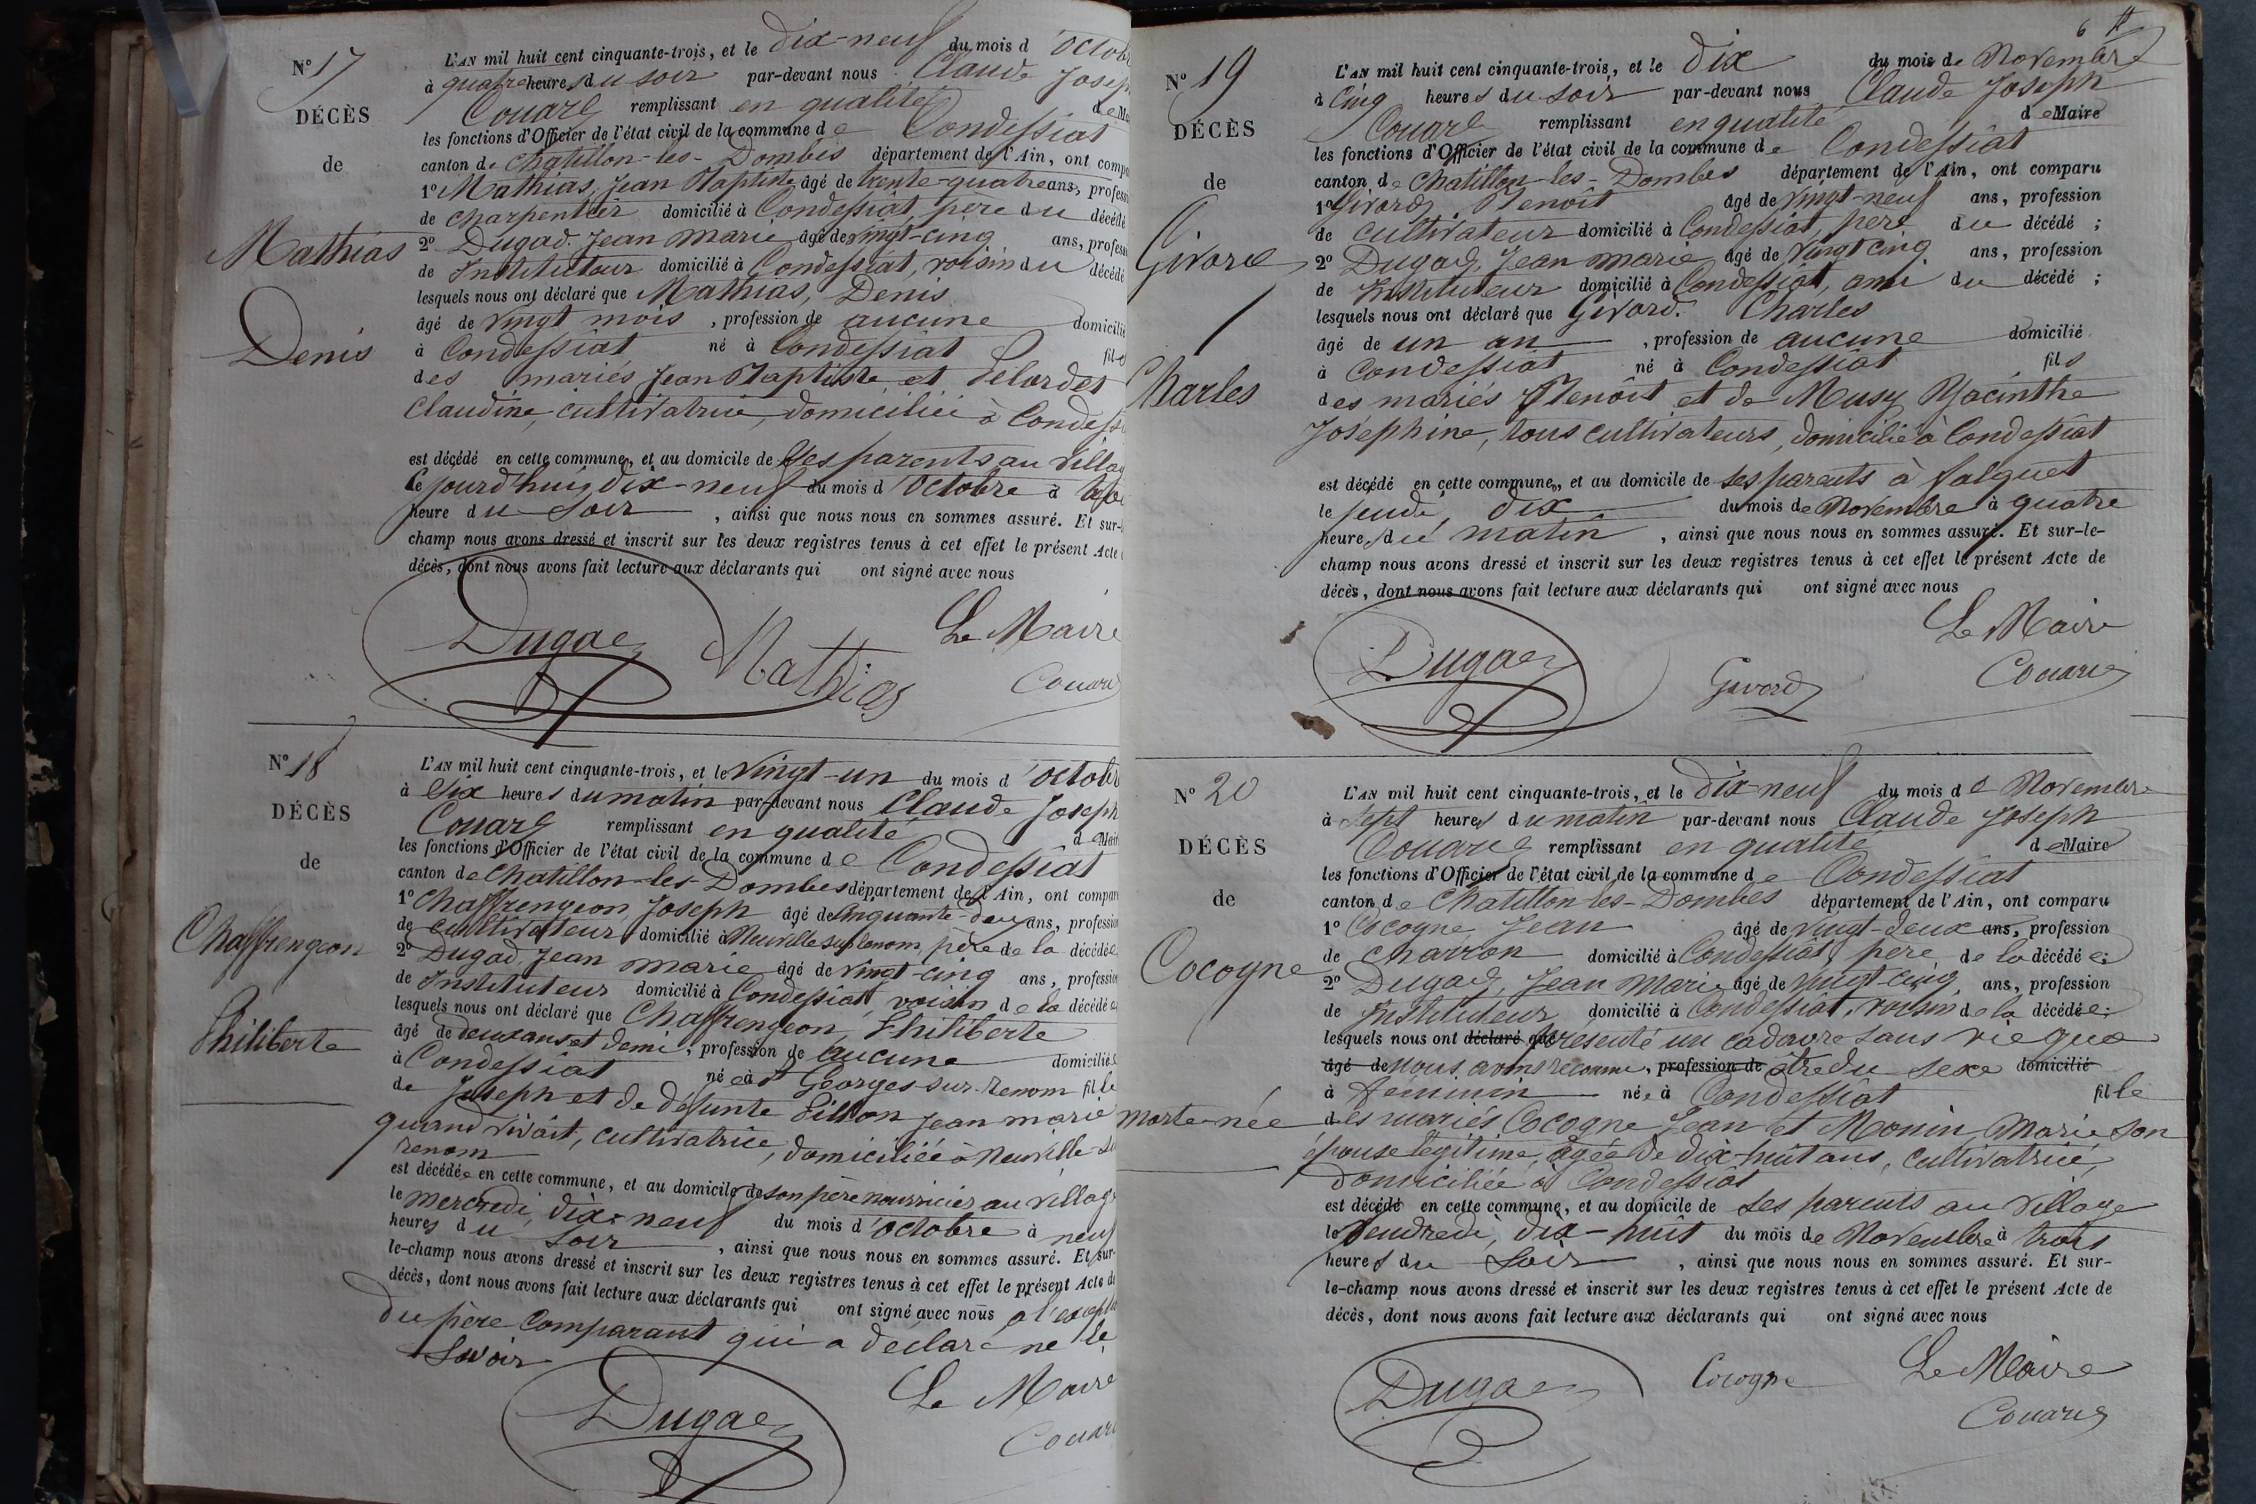 N° 17
DÉCÈS
de
Mathias
Denis
L'AN mil huit cent cinquante-trois, et le dix-neuf du mois d'octob
à quatre heures du soir par-devant nous Claude Josep
Couard remplissant en qualité de Ma
les fonctions d'Officier de l'état civil de la commune de Condessiat
canton de Chatillon-les-Dombes département de l'Ain, ont compa
1° Mathias, Jean Baptiste âgé de trente-quatre ans, profess
de charpentier domicilié à Condessiat, père du décédé
2° Dugad, Jean Marie âgé de vingt-cinq ans, profess
de Instituteur domicilié à Condessiat, voisin du décédé
lesquels nous ont déclaré que Mathias, Denis
âgé de vingt mois, profession de aucune domicilié
à Condessiat né à Condessiat fils
des mariés Jean Baptiste et
Claudine, cultivatrice, domiciliée à Condess
est décédé en cette commune, et au domicile de ses parents au villag
le jourd'hui, dix-neuf du mois d'octobre à
heure du soir, ainsi que nous nous en sommes assuré. Et sur-
champ nous avons dressé et inscrit sur les deux registres tenus à cet effet le présent Acte
décès, dont nous avons fait lecture aux déclarants qui ont signé avec nous
Le Maire
Dugad Mathias Couard
N° 18
DÉCÈS
de
Chaffrengeon
Philiberte
L'AN mil huit cent cinquante-trois, et le vingt-un du mois d'octob
à six heures du matin par-devant nous Claude Joseph
Couard remplissant en qualité de Mair
les fonctions d'Officier de l'état civil de la commune de Condessiat
canton de Chatillon-les-Dombes département de l'Ain, ont compar
1° Chaffrengeon, Joseph âgé de cinquante-deux ans, profession
de cultivateur domicilié à Neuville sur renom, père de la décédée
2° Dugad, Jean Marie âgé de vingt-cinq ans, profession
de Instituteur domicilié à Condessiat, voisin de la décédée
lesquels nous ont déclaré que Chaffrengeon, Philiberte
âgé de deux ans et demi, profession de aucune domiciliée
à Condessiat née à St Georges-sur-renom fille
de Joseph et de défunte Jean marie
quand vivait, cultivatrice, domiciliée à Neuville su
renom
est décédée en cette commune, et au domicile de son père nourricier au village
le mercredi, dix-neuf du mois d'octobre à neuf
heures du soir, ainsi que nous nous en sommes assuré. Et sur-
le-champ nous avons dressé et inscrit sur les deux registres tenus à cet effet le présent Acte de
décès, dont nous avons fait lecture aux déclarants qui ont signé avec nous à l'except
du père comparant qui a déclaré ne le
savoir
Le Maire
Dugad Couard
6
N° 19
DÉCÈS
de
Givord
Charles
L'AN mil huit cent cinquante-trois, et le dix du mois de Novembre
à cinq heures du soir par-devant nous Claude Joseph
Couard remplissant en qualité de Maire
les fonctions d'Officier de l'état civil de la commune de Condessiat
canton de Chatillon-les-Dombes département de l'Ain, ont comparu
1° Givord, Benoît âgé de vingt-neuf ans, profession
de cultivateur domicilié à Condessiat, père du décédé ;
2° Dugad, Jean marie âgé de vingt cinq ans, profession
de Instituteur domicilié à Condessiat, ami du décédé ;
lesquels nous ont déclaré que Givord, Charles
âgé de un an, profession de aucune domicilié
à Condessiat né à Condessiat fils
des mariés Benoît et de Musy Hyacinthe
Joséphine, tous cultivateurs, domicilié à Condessiat
est décédé en cette commune, et au domicile de ses parents à falquet
le jeudi, dix du mois de Novembre à quatre
heures du matin, ainsi que nous nous en sommes assuré. Et sur-le-
champ nous avons dressé et inscrit sur les deux registres tenus à cet effet le présent Acte de
décès, dont nous avons fait lecture aux déclarants qui ont signé avec nous
Le Maire
Dugad Givord Couard
N° 20
DÉCÈS
de
Cocogne
morte-née
L'AN mil huit cent cinquante-trois, et le dix-neuf du mois de Novembre
à sept heures du matin par-devant nous Claude Joseph
Couard remplissant en qualité de Maire
les fonctions d'Officier de l'état civil de la commune de Condessiat
canton de Chatillon-les-Dombes département de l'Ain, ont comparu
1° Cocogne, Jean âgé de vingt-deux ans, profession
de charron domicilié à Condessiat, père de la décédée;
2° Dugad, Jean Marie âgé de vingt-cinq ans, profession
de Instituteur domicilié à Condessiat, voisin de la décédée;
lesquels nous ont déclaré que présenté un cadavre sans vie que
âgé de nous avons reconnu, profession de être du sexe domicilié
à féminin née à Condessiat fille
des mariés Cocogne Jean et Monin, Marie son
épouse légitime, âgée de dix-huit ans, cultivatrice,
domiciliée à Condessiat
est décédé en cette commune, et au domicile de ses parents au village
le vendredi, dix-huit du mois de Novembre à trois
heures du soir, ainsi que nous nous en sommes assuré. Et sur-
le-champ nous avons dressé et inscrit sur les deux registres tenus à cet effet le présent Acte de
décès, dont nous avons fait lecture aux déclarants qui ont signé avec nous
Le Maire
Dugad Cocogne Couard